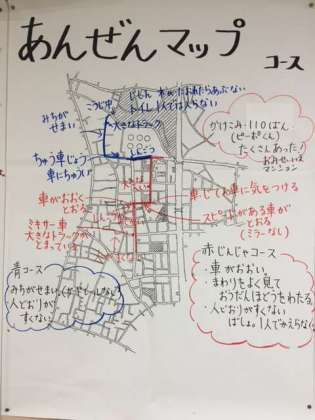 あんぜんマップ
コース
こうじ中
じしん 木
トイレ 1人で入らない
みちが
せまい
大きなトラック
かけこみ110ばん
(ピーポくん)
たくさんあった!
おみせ・いえ
マンション
ちゅう車じょう
車にちゅうい
車がおおく
とおる
車じてん車に気をつける
スピードがある車が
とおる
(ミラーなし)
ミキサー車
大きなトラックが
とまっている
赤じんじゃコース
・車がおおい。
・まわりをよく見て
おうだんほどうをわたる。
・人どおりがすくない
ばしょ。1人でみえらない。
青コース
みちがせまい。
人どおりが
すくない。